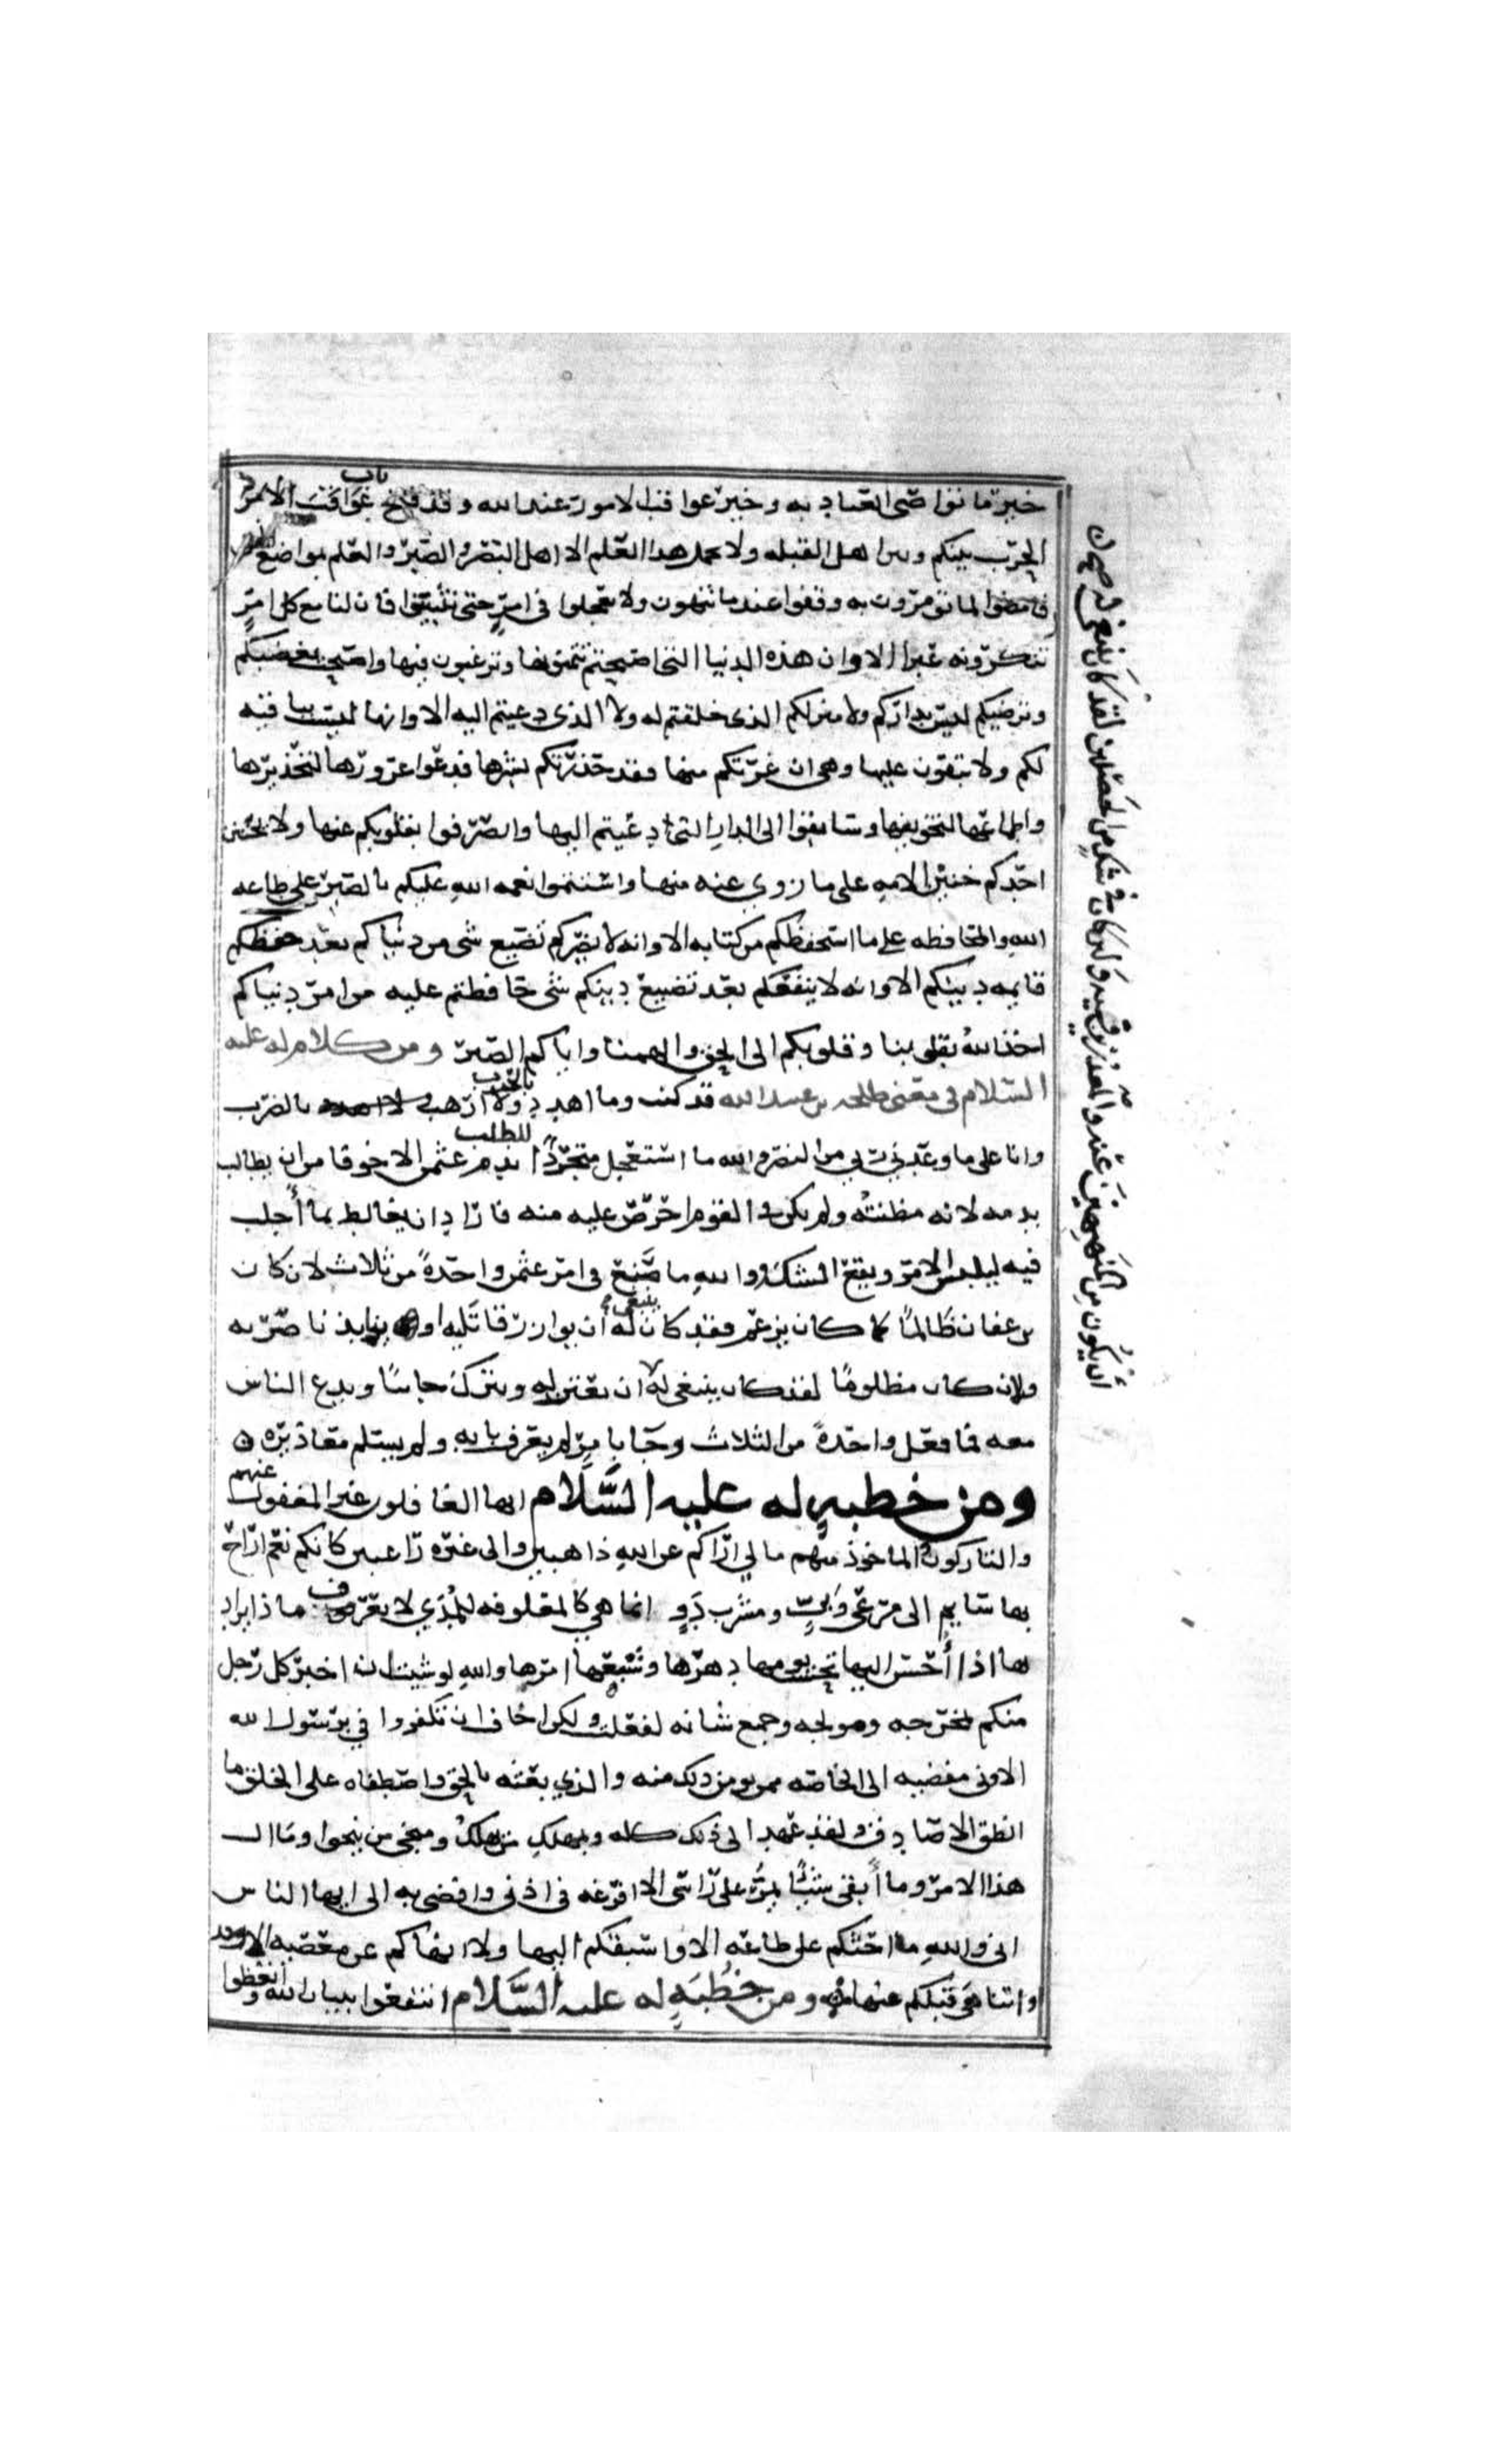 خير ما تواصى العباد به وخير عواقب الامور عند الله وقد فتح باب
الحرب بينكم وبين اهل القبله ولا يحمل هذا العلم الا اهل البصر والصبر والعلم بمواضع
فامضوا لما تومرون به وقفوا عند ما تنهون ولا تعجلوا في امر حتى تتبينوا فان لنا مع كل امر
تنكرونه غيرا الا وان هذه الدنيا التي اصبحتم تتمنونها وترغبون فيها واصبحت تغضبكم
وترضيكم ليست بداركم ولا منزلكم الذي خلقتم له ولا الذي دعيتم اليه الا وانها ليست بباقيه
لكم ولا تبقون عليها وهي ان غرتكم منها فقد حذرتكم شرها فدعوا غرورها لتحذيرها
واطماعها لتخويفها وسابقوا الى الدار التي دعيتم اليها وانصرفوا بقلوبكم عنها ولا يخنن
احدكم خنين الامه على ما زوي عنه منها واستتموا نعمه الله عليكم بالصبر على طاعه
الله والمحافظه على ما استحفظكم من كتابه الا وانه لا يضركم تضييع شي من دنياكم بعد حفظكم
قايمه دينكم الا وانه لا ينفعكم بعد تضييع دينكم شي حافظتم عليه من امر دنياكم
اخذ الله بقلوبنا وقلوبكم الى الحق والهمنا واياكم الصبر ومن كلام له عليه
السلام في معنى طلحه بن عبيد الله قد كنت وما اهدد بالحرب ولا ارهب بالضرب
وانا على ما وعدني ربي من النصر والله ما استعجل متجردا للطلب بدم عثمن الا خوفا من ان يطالب
بدمه لانه مظنته ولم يكن في القوم احرص عليه منه فاراد ان يغالط بما أجلب
فيه ليلبس الامر ويقع الشك ووالله ما صنع في امر عثمن واحدةً من ثلاث لان كان
بن عفان ظالمًا كما كان يزعم فقد كان ينبغي له ان يوازر قاتليه او ينابذ ناصريه
ولان كان مظلومًا لقد كان ينبغي له ان يكون من المنهنهين عنه والمعذرين فيه ولين كان في شك من الخصلتين لقد كان ينبغي له ان يعتزله ويركد جانبًا ويدع الناس
معه فما فعل واحدةً من الثلاث وجا بامر لم يعرف بابه ولم يسلم معاذيره
ومن خطبهٍ له عليه السَّلام ايها الغافلون غير المغفول عنهم
والتاركون الماخوذ منهم ما لي اراكم عن الله ذاهبين والى غيره راغبين كانكم نعم اراح
بها سايم الى مرعى وبيٍّ ومشرب دوٍي انما هي كالمعلوفه للمدي لا تعرف ماذا يراد
بها اذا أحسن اليها تحسب يومها دهرها وشبعها امرها والله لو شيت ان اخبر كل رجل
منكم بمخرجه ومولجه وجميع شانه لفعلت ولكن اخاف ان تكفروا في برسول الله
الا واني مفضيه الى الخاصه ممن يومن ذلك منه والذي بعثه بالحق واصطفاه على الخلق ما
انطق الا صادقا ولقد عهد الي ذلك كله وبمهلك من يهلك ومنجى من ينجوا ومال
هذا الامر وما أبقى شيئًا يمرُّ على راسي الا افرغه في اذني وافضى به الي ايها الناس
اني والله ما احثكم على طاعه الا واسبقكم اليها ولا انهاكم عن معصيه الا
واتناهى قبلكم عنها ومن خُطبَهٍ له عليه السَّلام انتفعوا ببيان الله واتعظوا